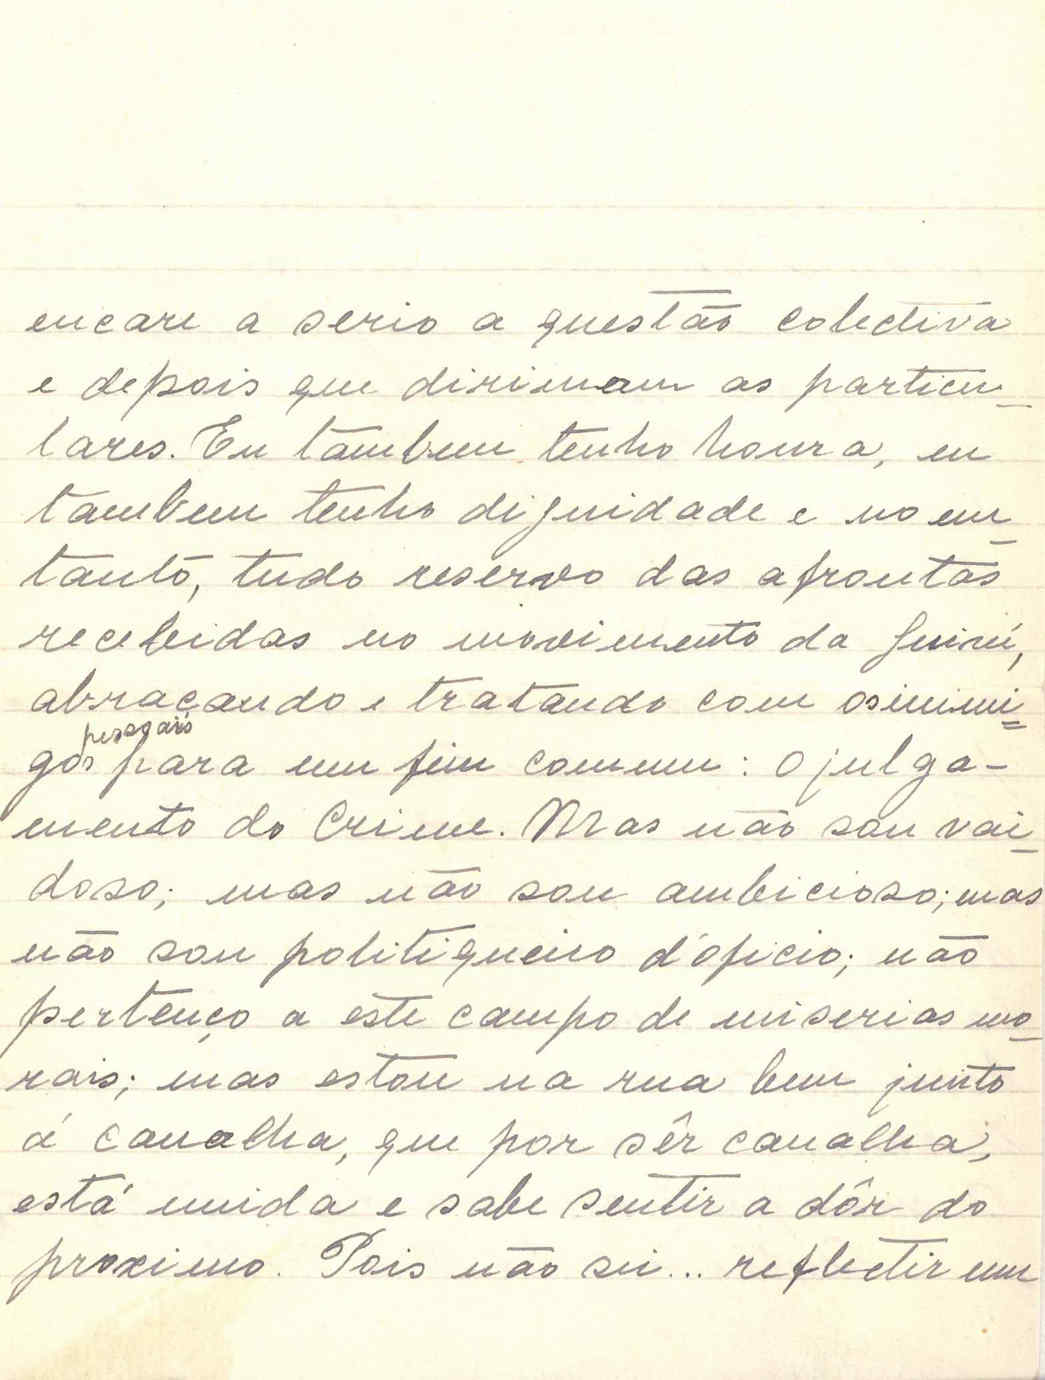 encare a serio a questão colectiva
e depois que dirimam as particu-
lares. Eu tambem tenho honra, eu
tambem tenho dignidade e no en-
tanto, tudo reservo das afrontas
recebidas no movimento da Guiné,
abraçando e tratando com os inimi-
gos pessoais para um fim comum: o julga-
mento do Crime. Mas não sou vai-
doso; mas não sou ambicioso; mas
não sou politiqueiro d'oficio; não
pertenço a este campo de miserias mo-
rais; mas estou na rua bem junto
á canalha, que por sêr canalha,
está unida e sabe sentir a dôr do
proximo. Pois não sei... reflectir um